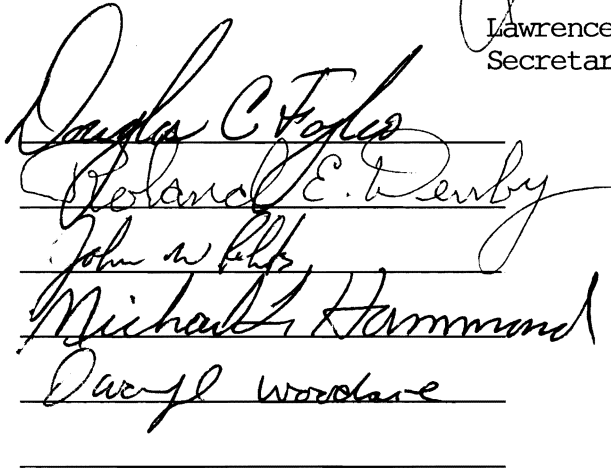 Lawrence
Secretar
Douglas C
Roland E. Denby
John W
Michael Hammond
Daryl